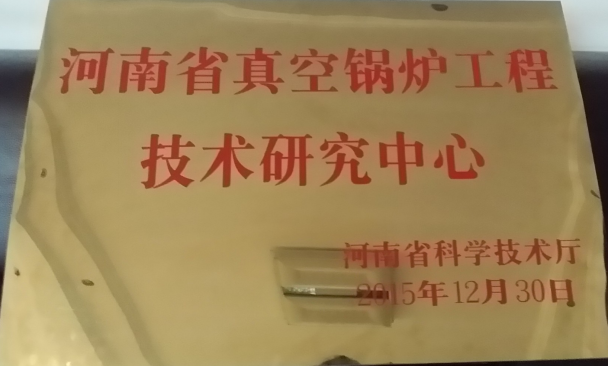 河南省真空锅炉工程
技术研究中心
河南省科学技术厅
2015年12月30日